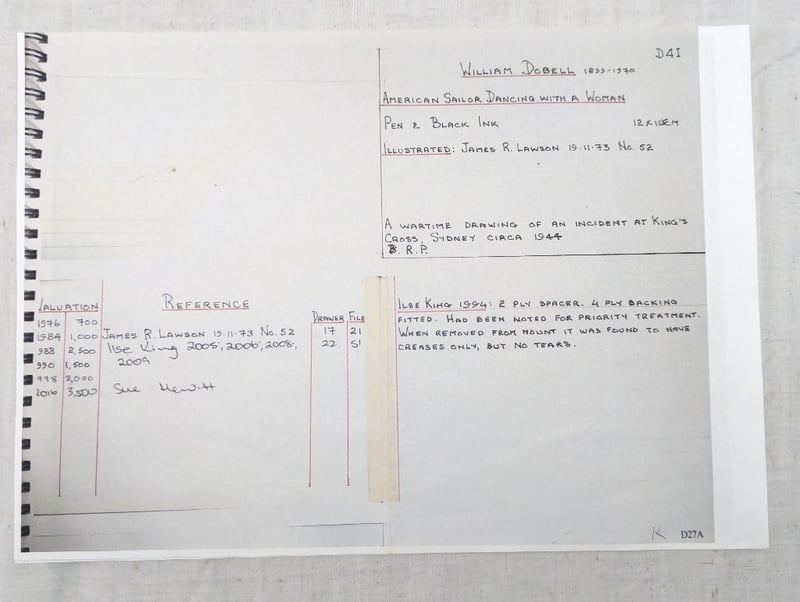 D41
WILLIAM DOBELL 1899-1970
AMERICAN SAILOR DANCING WITH A WOMAN
PEN & BLACK INK
ILLUSTRATED: JAMES R. LAWSON 19.11.73 No. 52
A WARTIME DRAWING OF AN INCIDENT AT KING'S
CROSS, SYDNEY CIRCA 1944
B. R.P.
VALUATION
1976 700
1984 1,000
988 2,500
990 1,500
998 2,000
2016 3,500
REFERENCE
JAMES R. LAWSON 19.11.73 No. 52
Ilse King 2005, 2006, 2008,
2009
Sue Hewitt
DRAWER FILE
17 21
22 51
ILSE KING 1994: 2 PLY SPACER, 4 PLY BACKING
FITTED. HAD BEEN NOTED FOR PRIORITY TREATMENT.
WHEN REMOVED FROM MOUNT IT WAS FOUND TO HAVE
CREASES ONLY, BUT NO TEARS.
K D27A